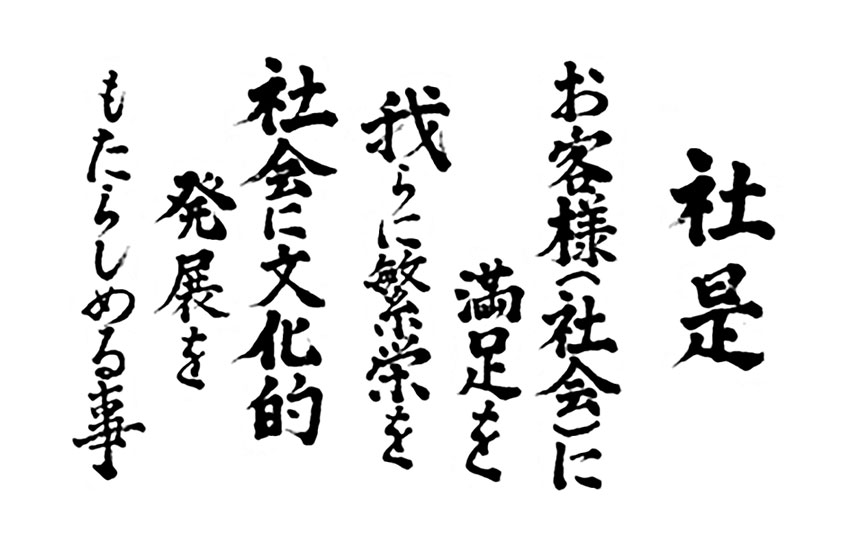 社是
お客様(社会)に
満足を
我らに繁栄を
社会に文化的
発展を
もたらしめる事